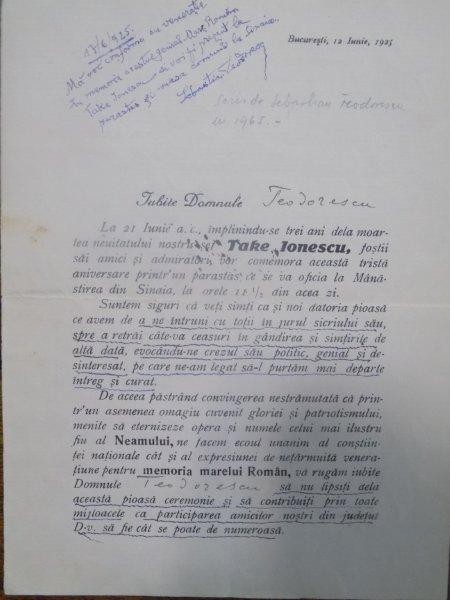 17/6/925.
Mă voi conforma cu venerație
În memoria acestui genial Mare Român
Take Ionescu voi fi prezent la
parastas și masa comună la Sinaia.
Sebastian Teodorescu
București, 12 Iunie, 1925
Scris de Sebastian Teodorescu
în 1965. -
Iubite Domnule Teodorescu
La 21 Iunie a. c., împlinindu-se trei ani dela moar-
tea neuitatului nostru șef Take Ionescu, foștii
săi amici și admiratori, vor comemora această tristă
aniversare printr'un parastas ce se va oficia la Mână-
stirea din Sinaia, la orele 11 1/2 din acea zi.
Suntem siguri că veți simți ca și noi datoria pioasă
ce avem de a ne întruni cu toții în jurul sicriului său,
spre a retrăi câte-va ceasuri în gândirea și simțirile de
altă dată, evocându-ne crezul său politic, genial și de-
sinteresat, pe care ne-am legat să-l purtăm mai departe
întreg și curat.
De aceea păstrând convingerea nestrămutată că prin-
tr'un asemenea omagiu cuvenit gloriei și patriotismului,
menite să eternizeze opera și numele celui mai ilustru
fiu al Neamului, ne facem ecoul unanim al conștiin-
ței naționale cât și al expresiunei de nețărmuită venera-
țiune pentru memoria marelui Român, vă rugăm iubite
Domnule Teodorescu să nu lipsiți dela
această pioasă ceremonie și să contribuiți prin toate
mijloacele ca participarea amicilor noștri din județul
D-v. să fie cât se poate de numeroasă.